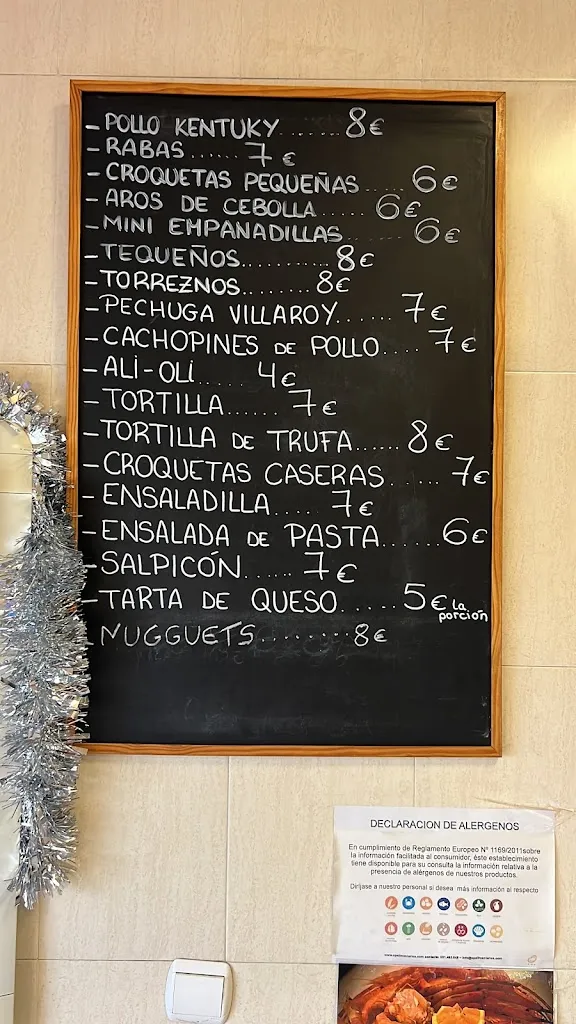 - POLLO KENTUKY....... 8€
- RABAS...... 7€
- CROQUETAS PEQUEÑAS..... 6€
- AROS DE CEBOLLA..... 6€
- MINI EMPANADILLAS....... 6€
- TEQUEÑOS.......... 8€
- TORREZNOS........ 8€
- PECHUGA VILLAROY...... 7€
- CACHOPINES DE POLLO.... 7€
- ALI-OLI...... 4€
- TORTILLA...... 7€
- TORTILLA DE TRUFA...... 8€
- CROQUETAS CASERAS...... 7€
- ENSALADILLA..... 7€
- ENSALADA DE PASTA...... 6€
- SALPICÓN...... 7€
- TARTA DE QUESO..... 5€ la
porción
- NUGGUETS.......... 8€
DECLARACION DE ALERGENOS
En cumplimiento de Reglamento Europeo Nº 1169/2011sobre
la información facilitada al consumidor, éste establecimiento
tiene disponible para su consulta la información relativa a la
presencia de alérgenos de nuestros productos.
Diríjase a nuestro personal si desea más información al respecto